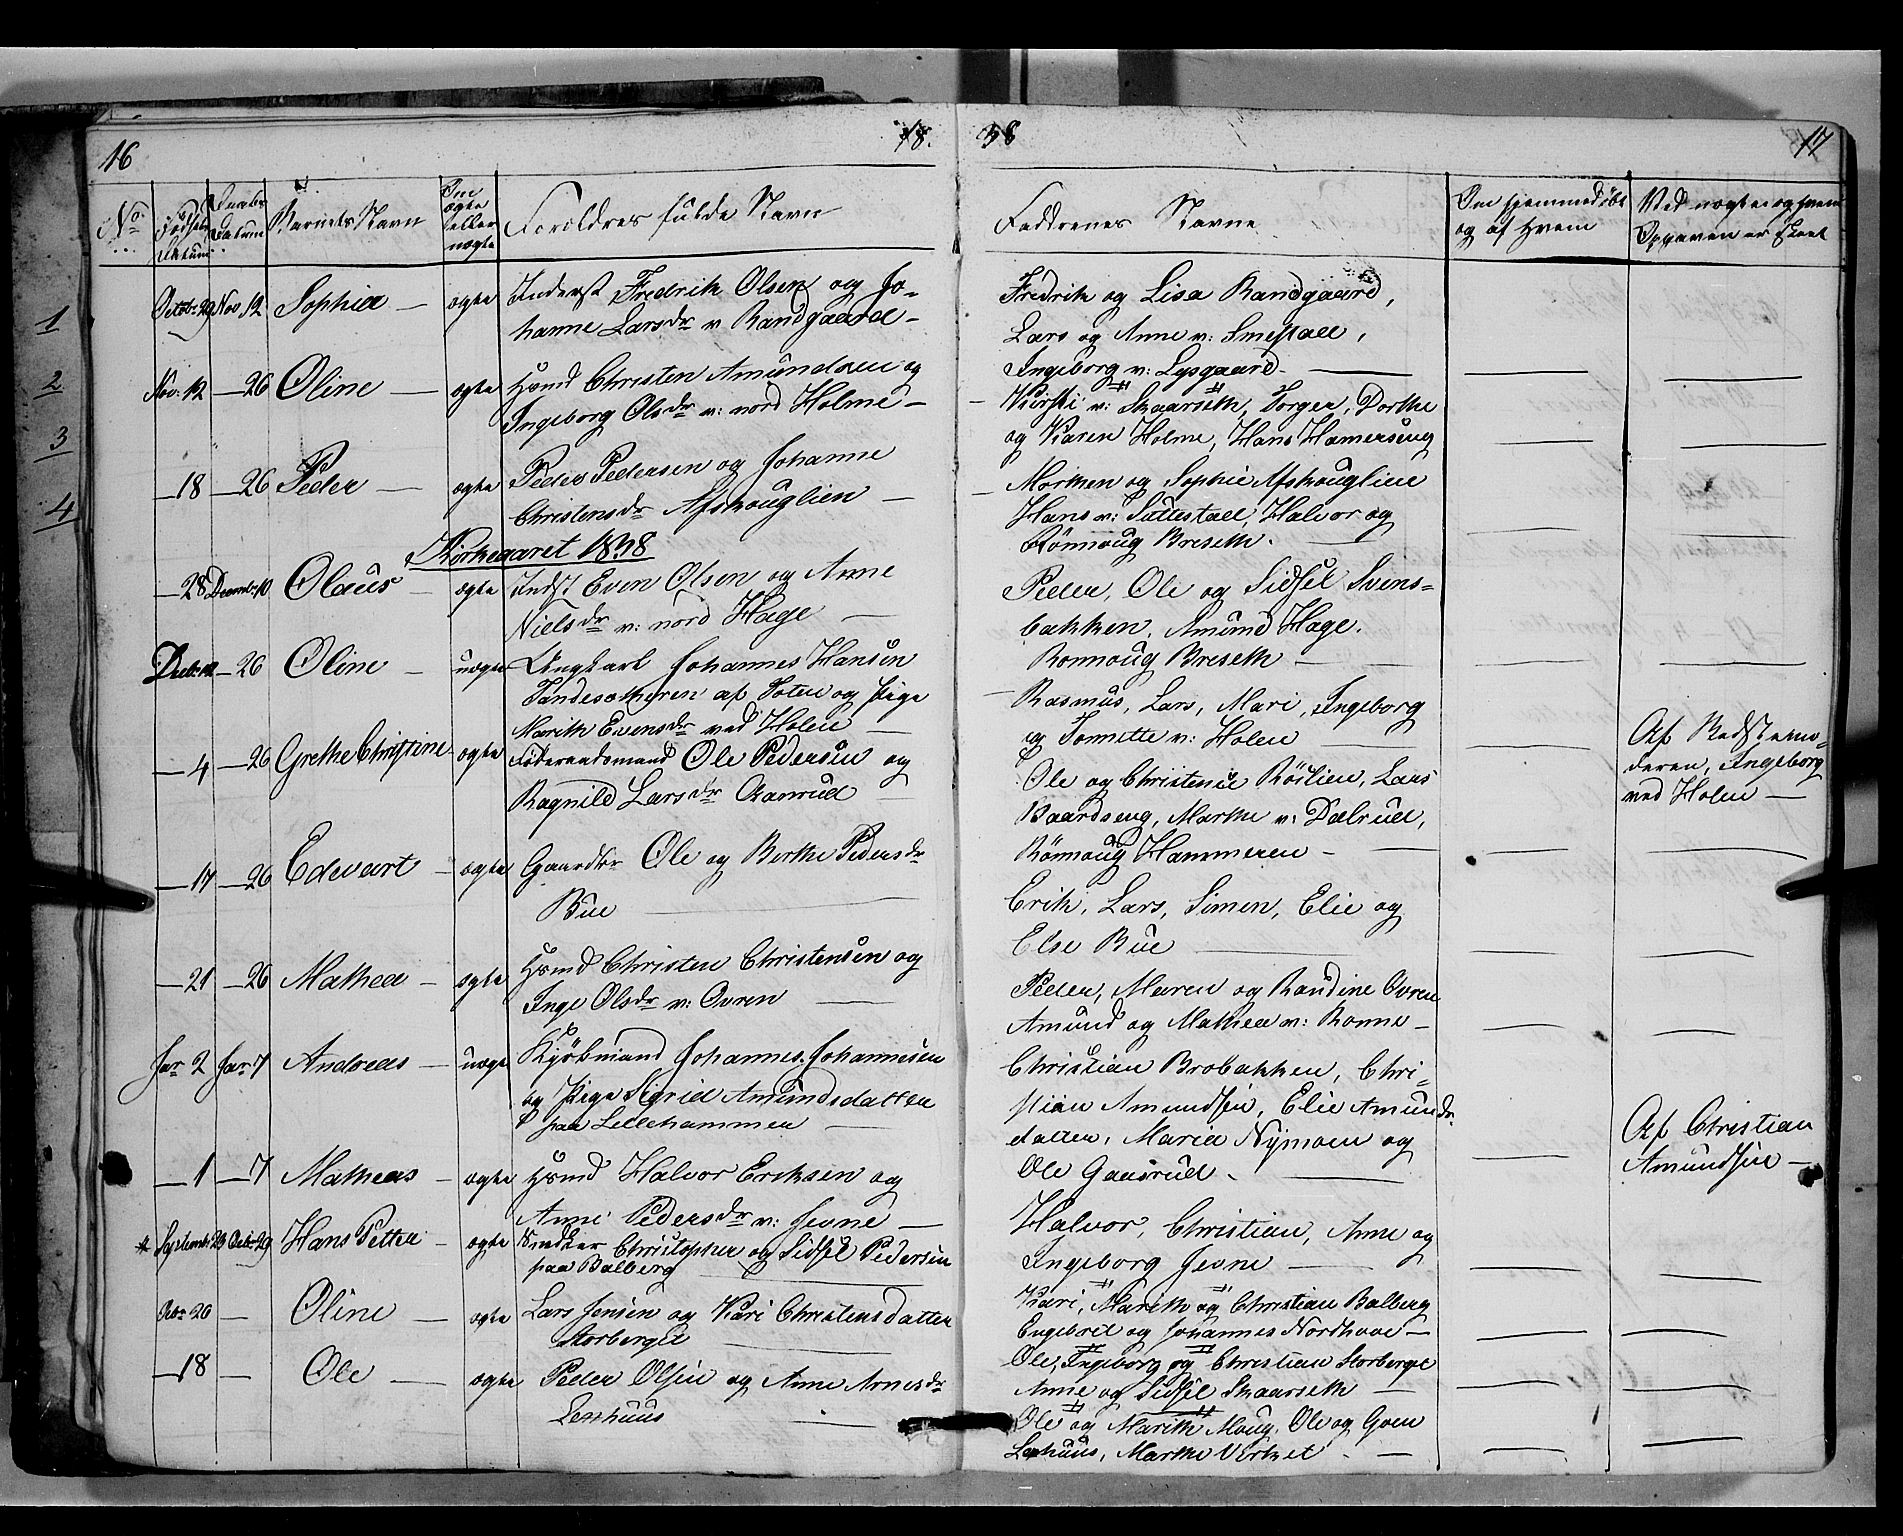 16
18.
38
17
No.
Fødsels
Datum
Daabs
Datum
Barnets Navn
Om
ægte
eller
uægte
Foreldres fulde Navn
Faddrenes Navne
Om hjemmedøbt
og af hvem
Ved uægte og hvem
Opgaven er skeet
1
2
3
4
Octob: 29 Nov 12 Sophia — ægte Inderst Fredrik Olsen og Jo-
hanne Larsdr v Randgaard —
Fredrik og Lisa Randgaard,
Lars og Anne v: Smestad,
Ingeborg v: Lysgaard —
Nov: 12 — 26 Oline — ægte Hsmd Christen Amundsen og
Ingeborg Olsdr v: nord Holme —
Kirsti v: Skaarseth, Torger, Dorthe
og Karen Holme, Hans Hamerseng
— 18 — 26 Peder — ægte Peder Pedersen og Johanne
Christensdr Afskouglien —
Morthen og Sophie Afskouglien
Hans v: Sattestad, Halvor og
Rönnoug Breseth.
Kirkeaaret 1838
— 28 Decemb: 10 Olaus — ægte Indst Even Olsen og Anne
Nielsdr v: nord Hage —
Peder, Ole og Sidsel Svens-
bakken, Amund Hage.
Ronnoug Breseth —
— 26 Oline — uægte Ungkarl Johannes Hansen
af Toten og Pige
Marith Evensdr ved Holen —
Rasmus, Lars, Mari, Ingeborg
og Tonnette v: Holen —
Af
deren, Ingeborg
ved Holen —
— 4 — 26 Grethe Christine — ægte Föderaadsmand Ole Pedersen og
Ragnild Larsdr Aanrud —
Ole og Christense Röislien, Lars
Baardseng, Marthe v: Dalrud,
Rönnoug Hammeren —
— 17 — 26 Edevart — ægte Gaardbr Ole og Berthe Pedersdr
Bue —
Erik, Lars, Simen, Elie og
Else Bue —
— 21 — 26 Mathea — ægte Hsmd Christen Christensen og
Inge Olsdr v: Ovren —
Peder, Maren og Randine Ovren
Amund og Mathea v: Ronne —
Jar 2 Jar 7 Andreas — uægte Kjöbmand Johannes Johannesen
og Pige Sigrid Amundsdatter
paa Lillehammer —
Christian Brobakken, Chri-
stian Amundsen, Elie Amunds-
datter, Maria Nymoen og
Ole Gaasrud. —
Af Christian
Amundsen —
— 1 — 7 Matheas — ægte Hsmd Halvor Eriksen og
Anne Pedersdr v: Jevne —
Halvor, Christian, Anne og
Ingeborg Jevne —
Septemb: 23 Octb: 29 Hans Petter — ægte Snedker Christopher og Sidsel Pedersen
paa Balberg —
Kari, Marith og Christian Balberg
Engebret og Johannes Nordhove —
Octbr 20 — Oline — ægte Lars Jensen og Kari Christensdatter
Storberget —
Ole, Ingeborg og Christian Storberget
Anne og Sidsel Skaarseth —
— 18 — Ole — ægte Peder Olsen og Anne Arnesdr
Lenhuus —
Ole og Marith Moug, Ole og Goen
Lenhuus, Marthe Virket —